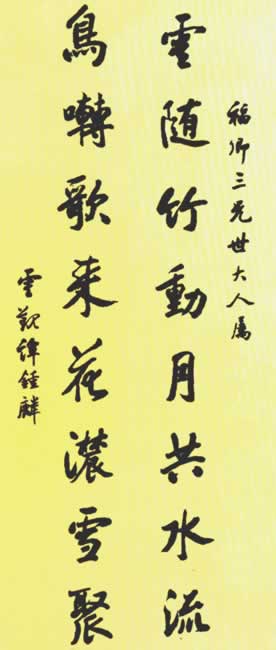 福卿三兄世大人属
雲随竹動月共水流
鳥囀歌来花濃雪聚
雲覲譚鍾麟